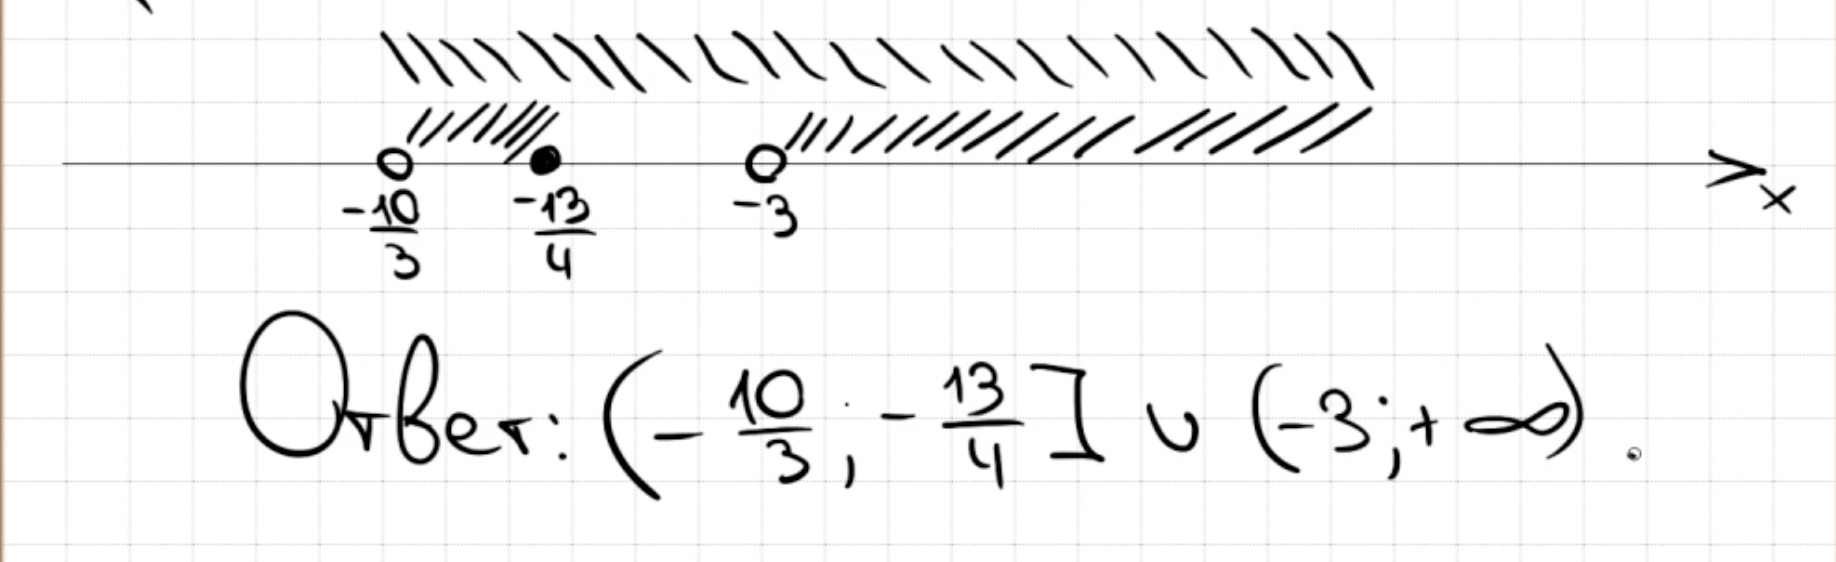 -10/3 -13/4 -3 x
Ответ: (-10/3; -13/4] ∪ (-3; +∞).